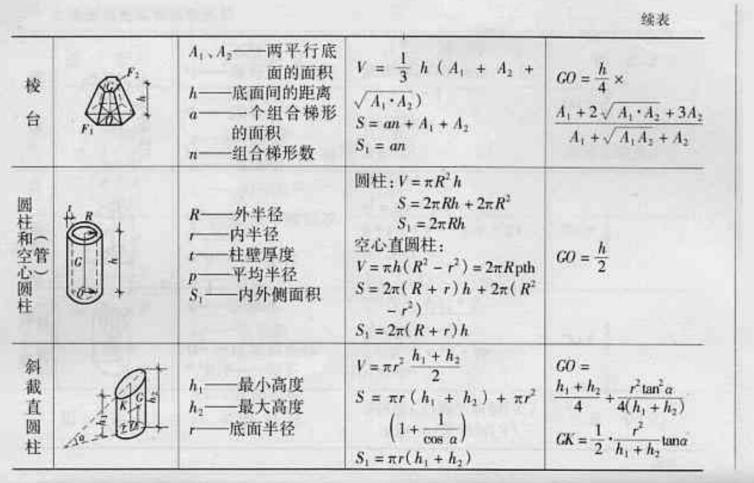 续表
棱台
F₂
G
h
O
F₁
A₁、A₂——两平行底
面的面积
h——底面间的距离
a——一个组合梯形
的面积
n——组合梯形数
V = 1/3 h ( A₁ + A₂ +
√(A₁·A₂) )
S = an + A₁ + A₂
S₁ = an
GO = h/4 ×
(A₁ + 2√(A₁·A₂) + 3A₂)/(A₁ + √(A₁A₂) + A₂)
圆柱和空心圆柱
(管)
t
R
G
h
O
R——外半径
r——内半径
t——柱壁厚度
p——平均半径
S₁——内外侧面积
圆柱:V = πR²h
S = 2πRh + 2πR²
S₁ = 2πRh
空心直圆柱:
V = πh(R² - r²) = 2πRpth
S = 2π(R + r)h + 2π(R²
- r²)
S₁ = 2π(R + r)h
GO = h/2
斜截直圆柱
G
K
h₂
h₁
α
h₁——最小高度
h₂——最大高度
r——底面半径
V = πr² (h₁ + h₂)/2
S = πr ( h₁ + h₂ ) + πr²
(1 + 1/cos α)
S₁ = πr(h₁ + h₂)
GO =
(h₁ + h₂)/4 + r²tan²α/4(h₁ + h₂)
GK = 1/2 · r²/(h₁ + h₂) tanα